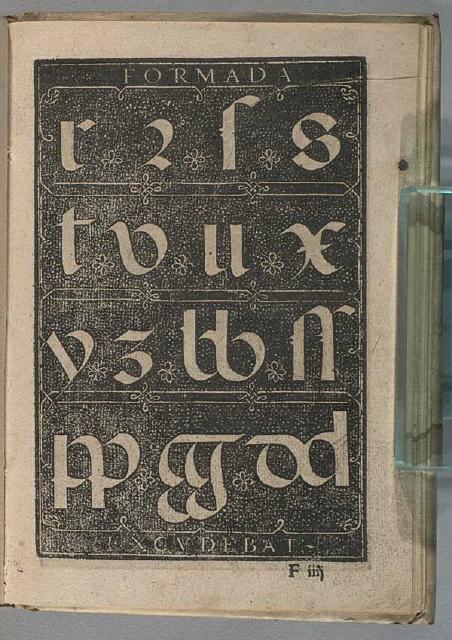 FORMADA
r ꝛ ſ s
t v u x
y ʒ bb ſſ
pp gg dd
EXCVDEBAT
F iiij